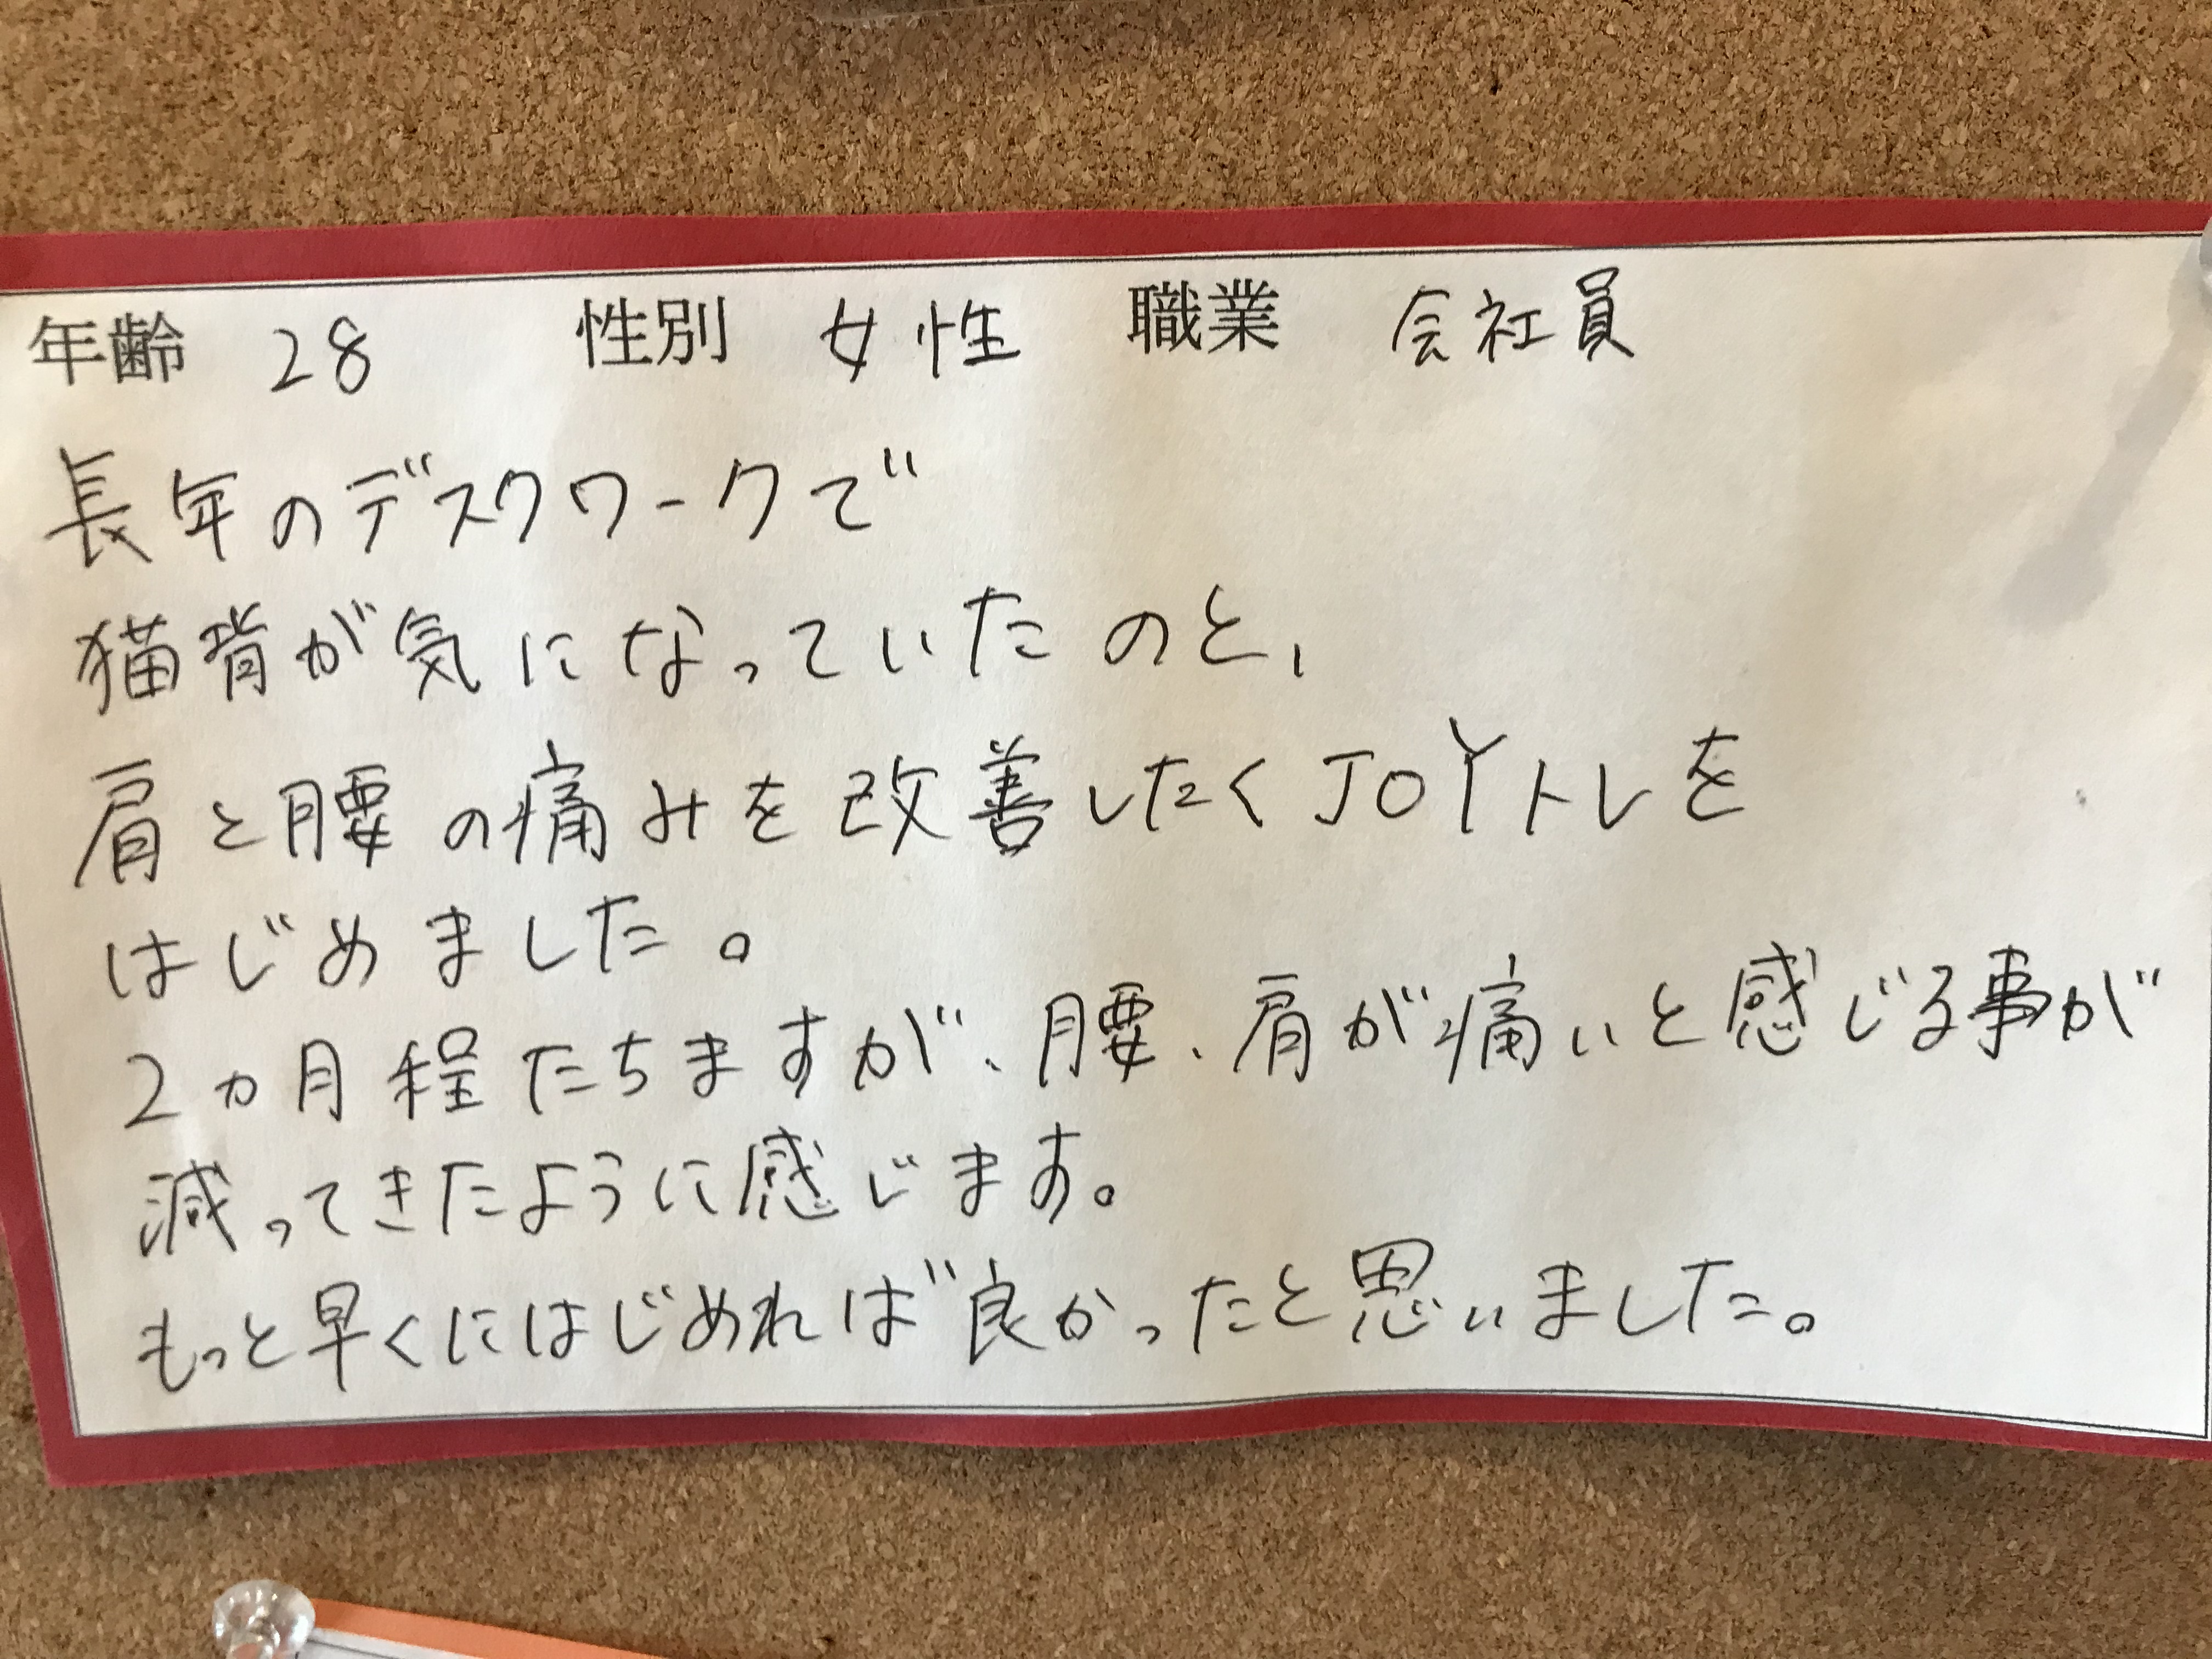 年齢 28 性別 女性 職業 会社員
長年のデスクワークで
猫背が気になっていたのと、
肩と腰の痛みを改善したくJOYトレを
はじめました。
2ヵ月程たちますが、腰、肩が痛いと感じる事が
減ってきたように感じます。
もっと早くにはじめれば良かったと思いました。